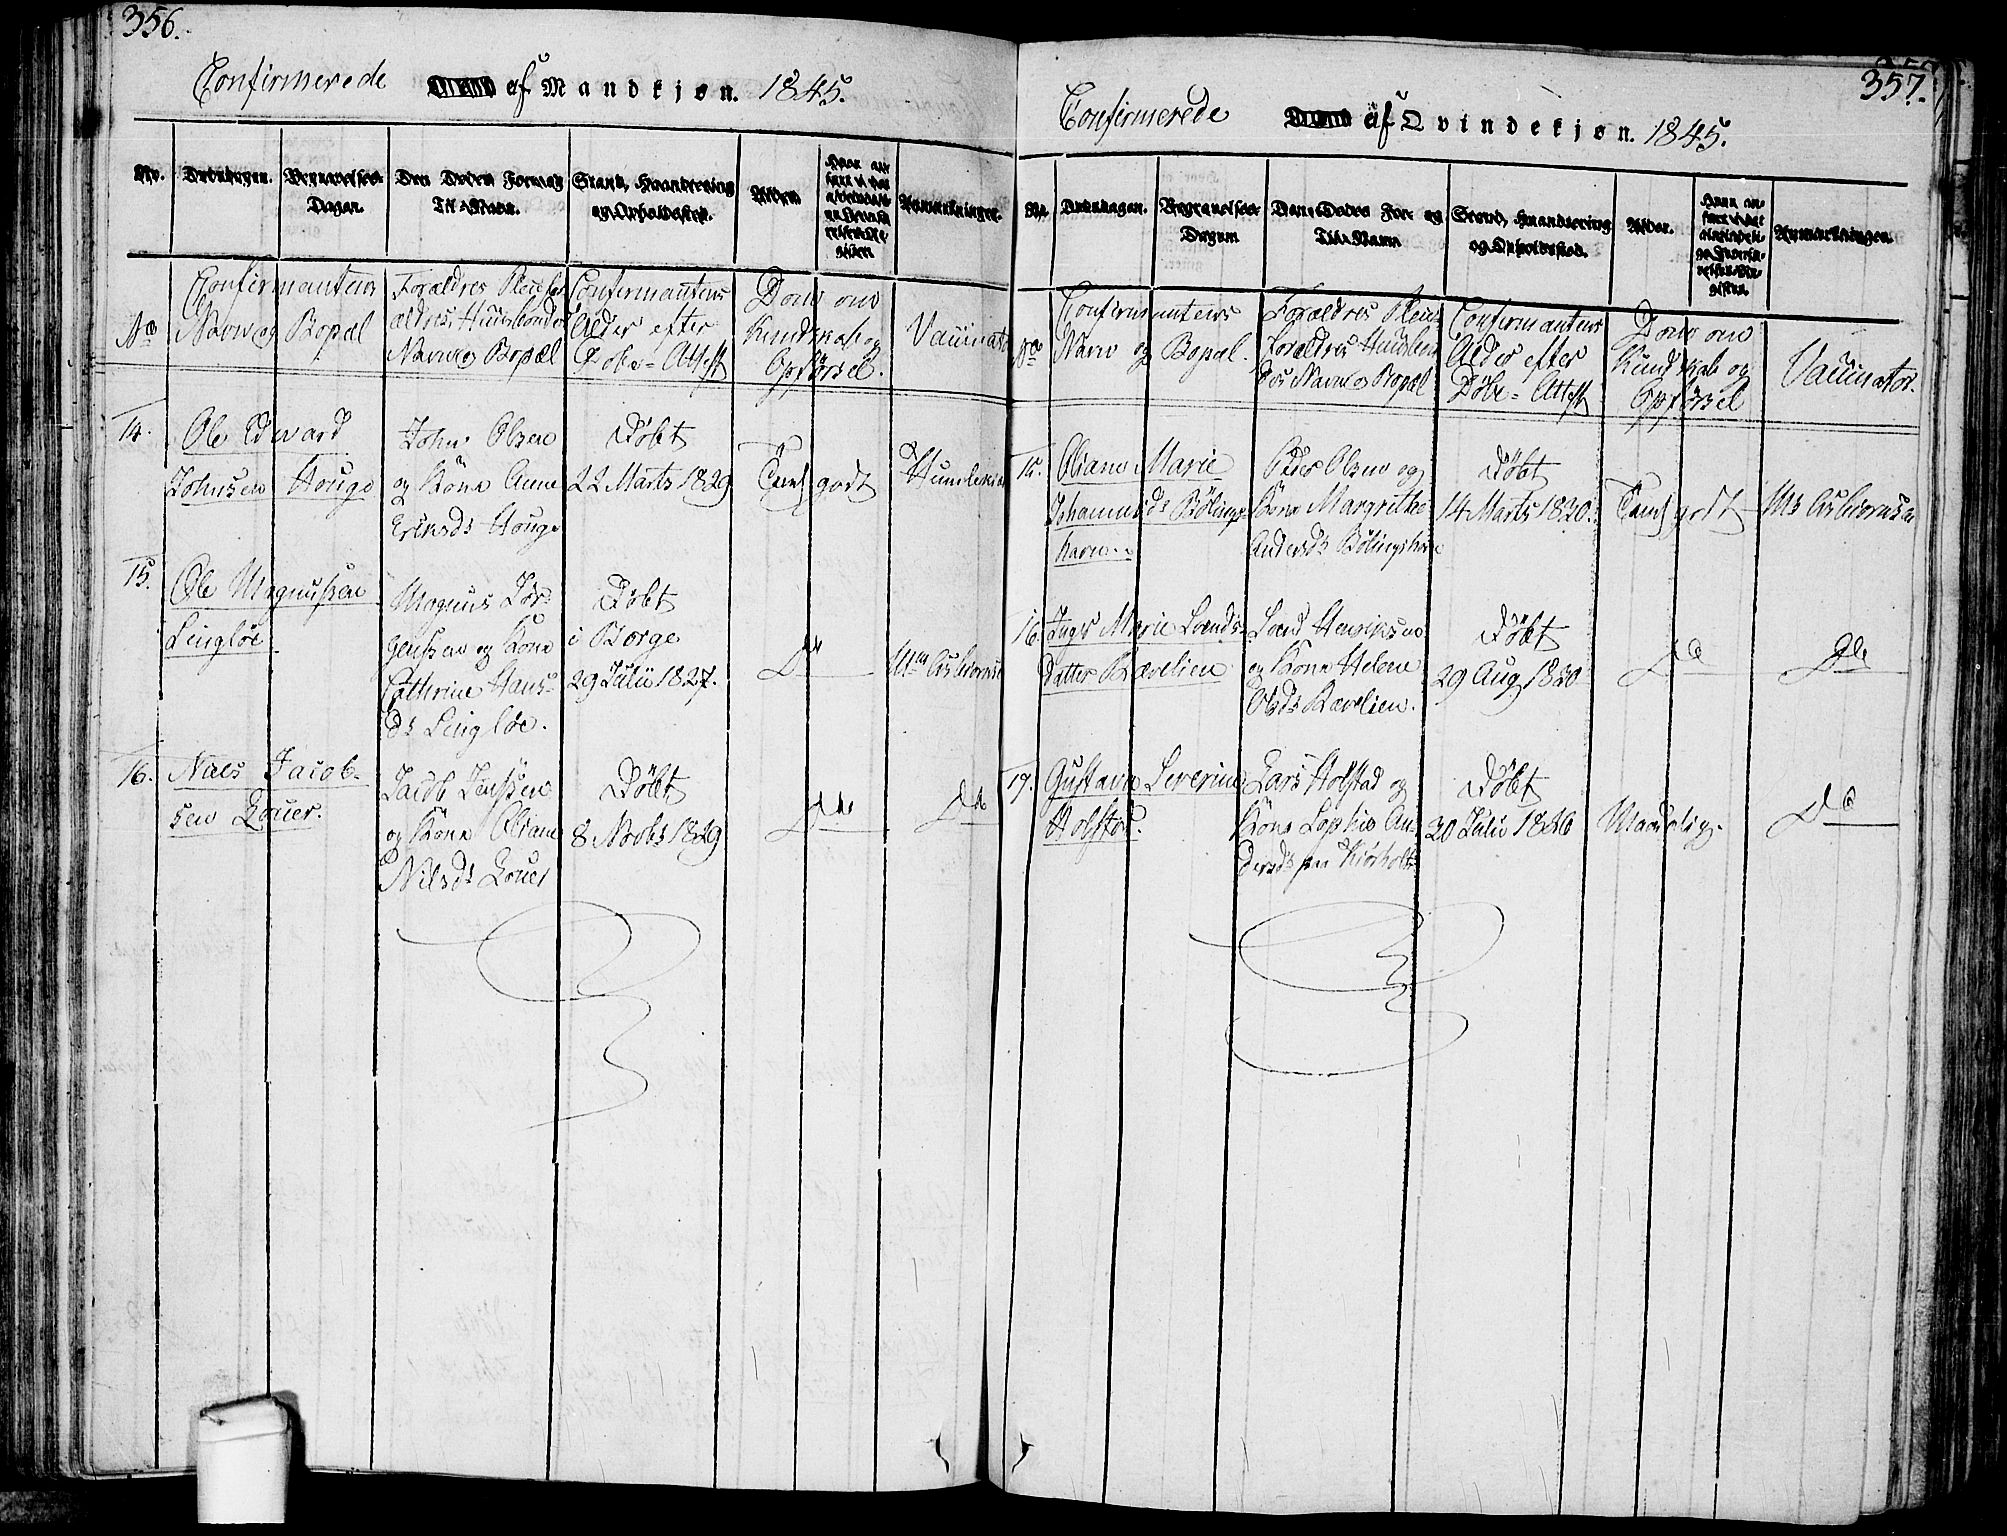 356.
Confirmerede af Mandkjøn. 1845.
No. Dødsdagen. Begravelses- Dagen. Den Dødes Fornavn Til-Navn. Stand, Haandtering og Opholdssted. Alder. Anmærkninger.
No Confirmantens Navn og Bopæl
Forældres Pleiefor-
ældres, Huusbonders
Navn og Bopæl
Confirmantens
Alder efter
Døbe-Attest
Dom om
Kundskab og
Opførsel.
Vaccinator
14. Ole Edvard
Johnsen Houge
John Olsen
og Kone Anne
Ericksds Houge
Døbt
22 Marts 1829
Tem godt
15. Ole Magnussen
Lingløe
Magnus Jør-
gensen og Kone
Cathrine Hans-
ds Lingløe.
Døbt
i Borge
29 Julii 1827.
Do
Ms Asbiørnsen
16. Niels Jacob-
sen Houer.
Jacob Jenssen
og Kone Oliane
Nilsds Houer
Døbt
8 Novbr 1829
Do
Do
357.
Confirmerede af Qvindekjøn. 1845.
No. Dødsdagen. Begravelses- Dagen. Den Dødes For- og Til-Navn Stand, Haandtering og Opholdssted. Alder. Anmærkninger.
No Confirmantens
Navn og Bopæl.
Forældres Pleie-
forældres Huusbon-
ders Navn og Bopæl
Confirmantens
Alder efter
Døbe-Attest
Dom om
Kundskab og
Opførsel
Vaccinator.
15. Oliane Marie
Johannesds Bølings-
havn
Peder Olsen og
Kone Margrethe
Andersds Bølingshavn
Døbt
14 Marts 1830.
Tem godt
Ms Asbiornsen
16. Inger Marie Lænds-
datter Rævelien
Lænd Henriksen
og Kone Helene
Olsds Rævelien.
Døbt
29 Aug 1830
Do
Do
17. Gustava Severine
Holstad.
Lars Holstad og
Kone Sophie An-
dersds paa Kiørholt
Døbt
30 Julii 1830
Maadelig.
Do